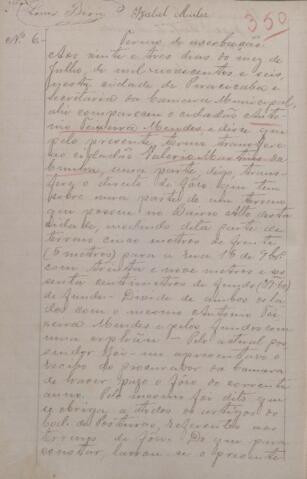 Louis Izabel Muler
350
Nº 6. Termo de averbação
Aos vinte e tres dias do mez de
Julho de mil novecentos e seis,
nesta cidade de Piracicaba e
secretaria da Camara Municipal,
ahi compareceu o cidadão Anto-
nio Teixeira Mendes, e disse que
pelo presente termo transfere
ao cidadão Valerio Martins da
Cunha, uma parte, digo, trans-
fere o direito de fôro que tem
sobre uma parte de um terreno
que possue no Bairro Alto desta
cidade, medindo dita parte de
terreno cinco metros de frente
(5 metros) para a rua 15 de 9bro
com trinta e nove metros e ses-
senta centimetros de fundo (39,60)
de fundo. Divide de ambos os la-
dos com o mesmo Antonio Tei-
xeira Mendes e pelos fundos com
uma Pelo actual pos-
suidor foi-me apresentado o
recibo do procurador da Camara
de haver pago o fôro do corrente
anno. Pelo mesmo foi dito que
se obriga a todos os artigos do
Cod. de Posturas, referentes aos
terrenos de fôro. Do que para
constar, lavrou-se o presente